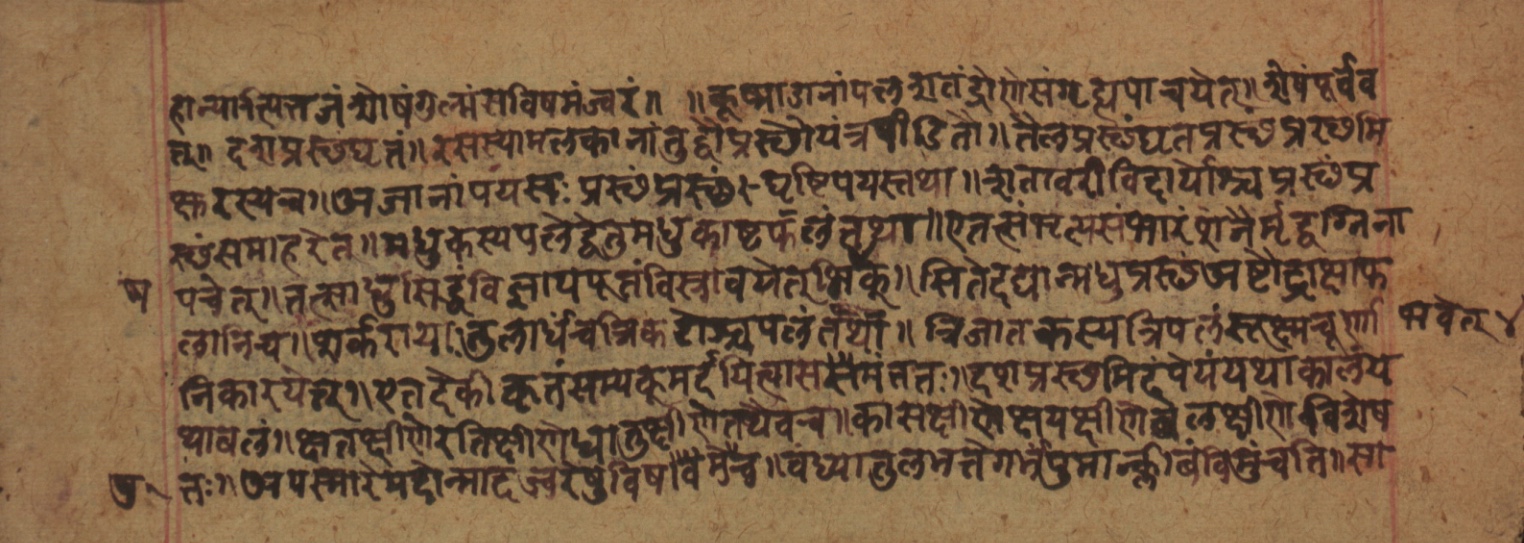 हान्यार्तपित्तजंशोषंगुल्मंसविषमंज्वरं॥ ॥कूष्माडानांपलशतंद्रोणेसंगृह्यपाचयेत्॥शेषंपूर्वव
त्॥दशप्रस्थघृतं॥रसस्यामलकानांतुद्वौप्रस्थौयंत्रपीडितौ॥तैलप्रस्थंघृतप्रस्थंप्रस्थमि
क्षुरस्यच॥अजानांपयसः प्रस्थंप्रस्थं गृष्टिपयस्तथा॥शतावरीविदार्याश्चप्रस्थंप्र
स्थंसमाहरेत्॥मधुकस्यपलेद्वेतुमधुकाष्टपलंतथा॥एतत्संभृत्यसंभारंशनैर्मृद्वग्निना
पचेत्॥तत्साधुसिद्धंविज्ञायपूतंविस्रावयेत्भिषक्॥सितेदद्यान्मधुप्रस्थंअष्टौद्राक्षाफ
लानिच॥शर्करायातुलार्धंचत्रिकटोश्चपलंतथा॥त्रिजातकस्यत्रिपलंसूक्ष्मचूर्णा
निकारयेत्॥एतदेकीकृतंसम्यक्मर्दयित्वा ततः॥दशप्रस्थमिदंपेयंयथाकालंय
थाबलं॥क्षतक्षीणेरतिक्षीणेधातुक्षीणेतथैवच॥कासक्षीणेक्षयक्षीणेबलक्षीणेविशेष
तः॥अपस्मारेमदोन्मादज्वरेषुविष चैवंच॥वंध्यातुलभतेगर्भंपुमान्क्लीबंविमुंचति॥सा
ष
भवेत् ४